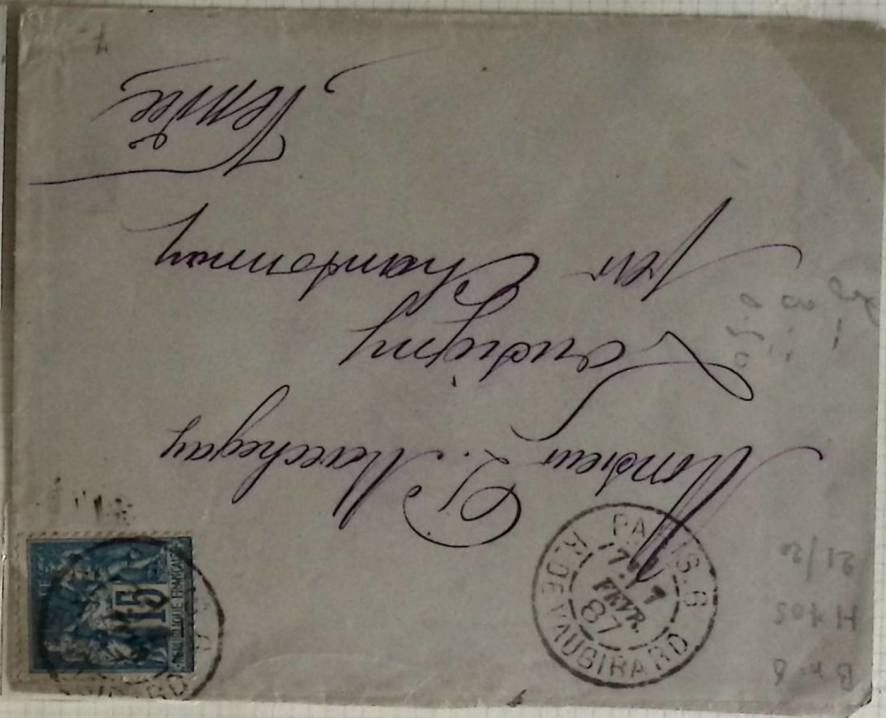 Monsieur P. Marchegay
Lousigny
par Chantonnay
Vendée
PARIS.6
7E 17
FEVR.
87
R. DE VAUGIRARD
15
REPUBLIQUE FRANCAISE
21/20
H 105
B n 8